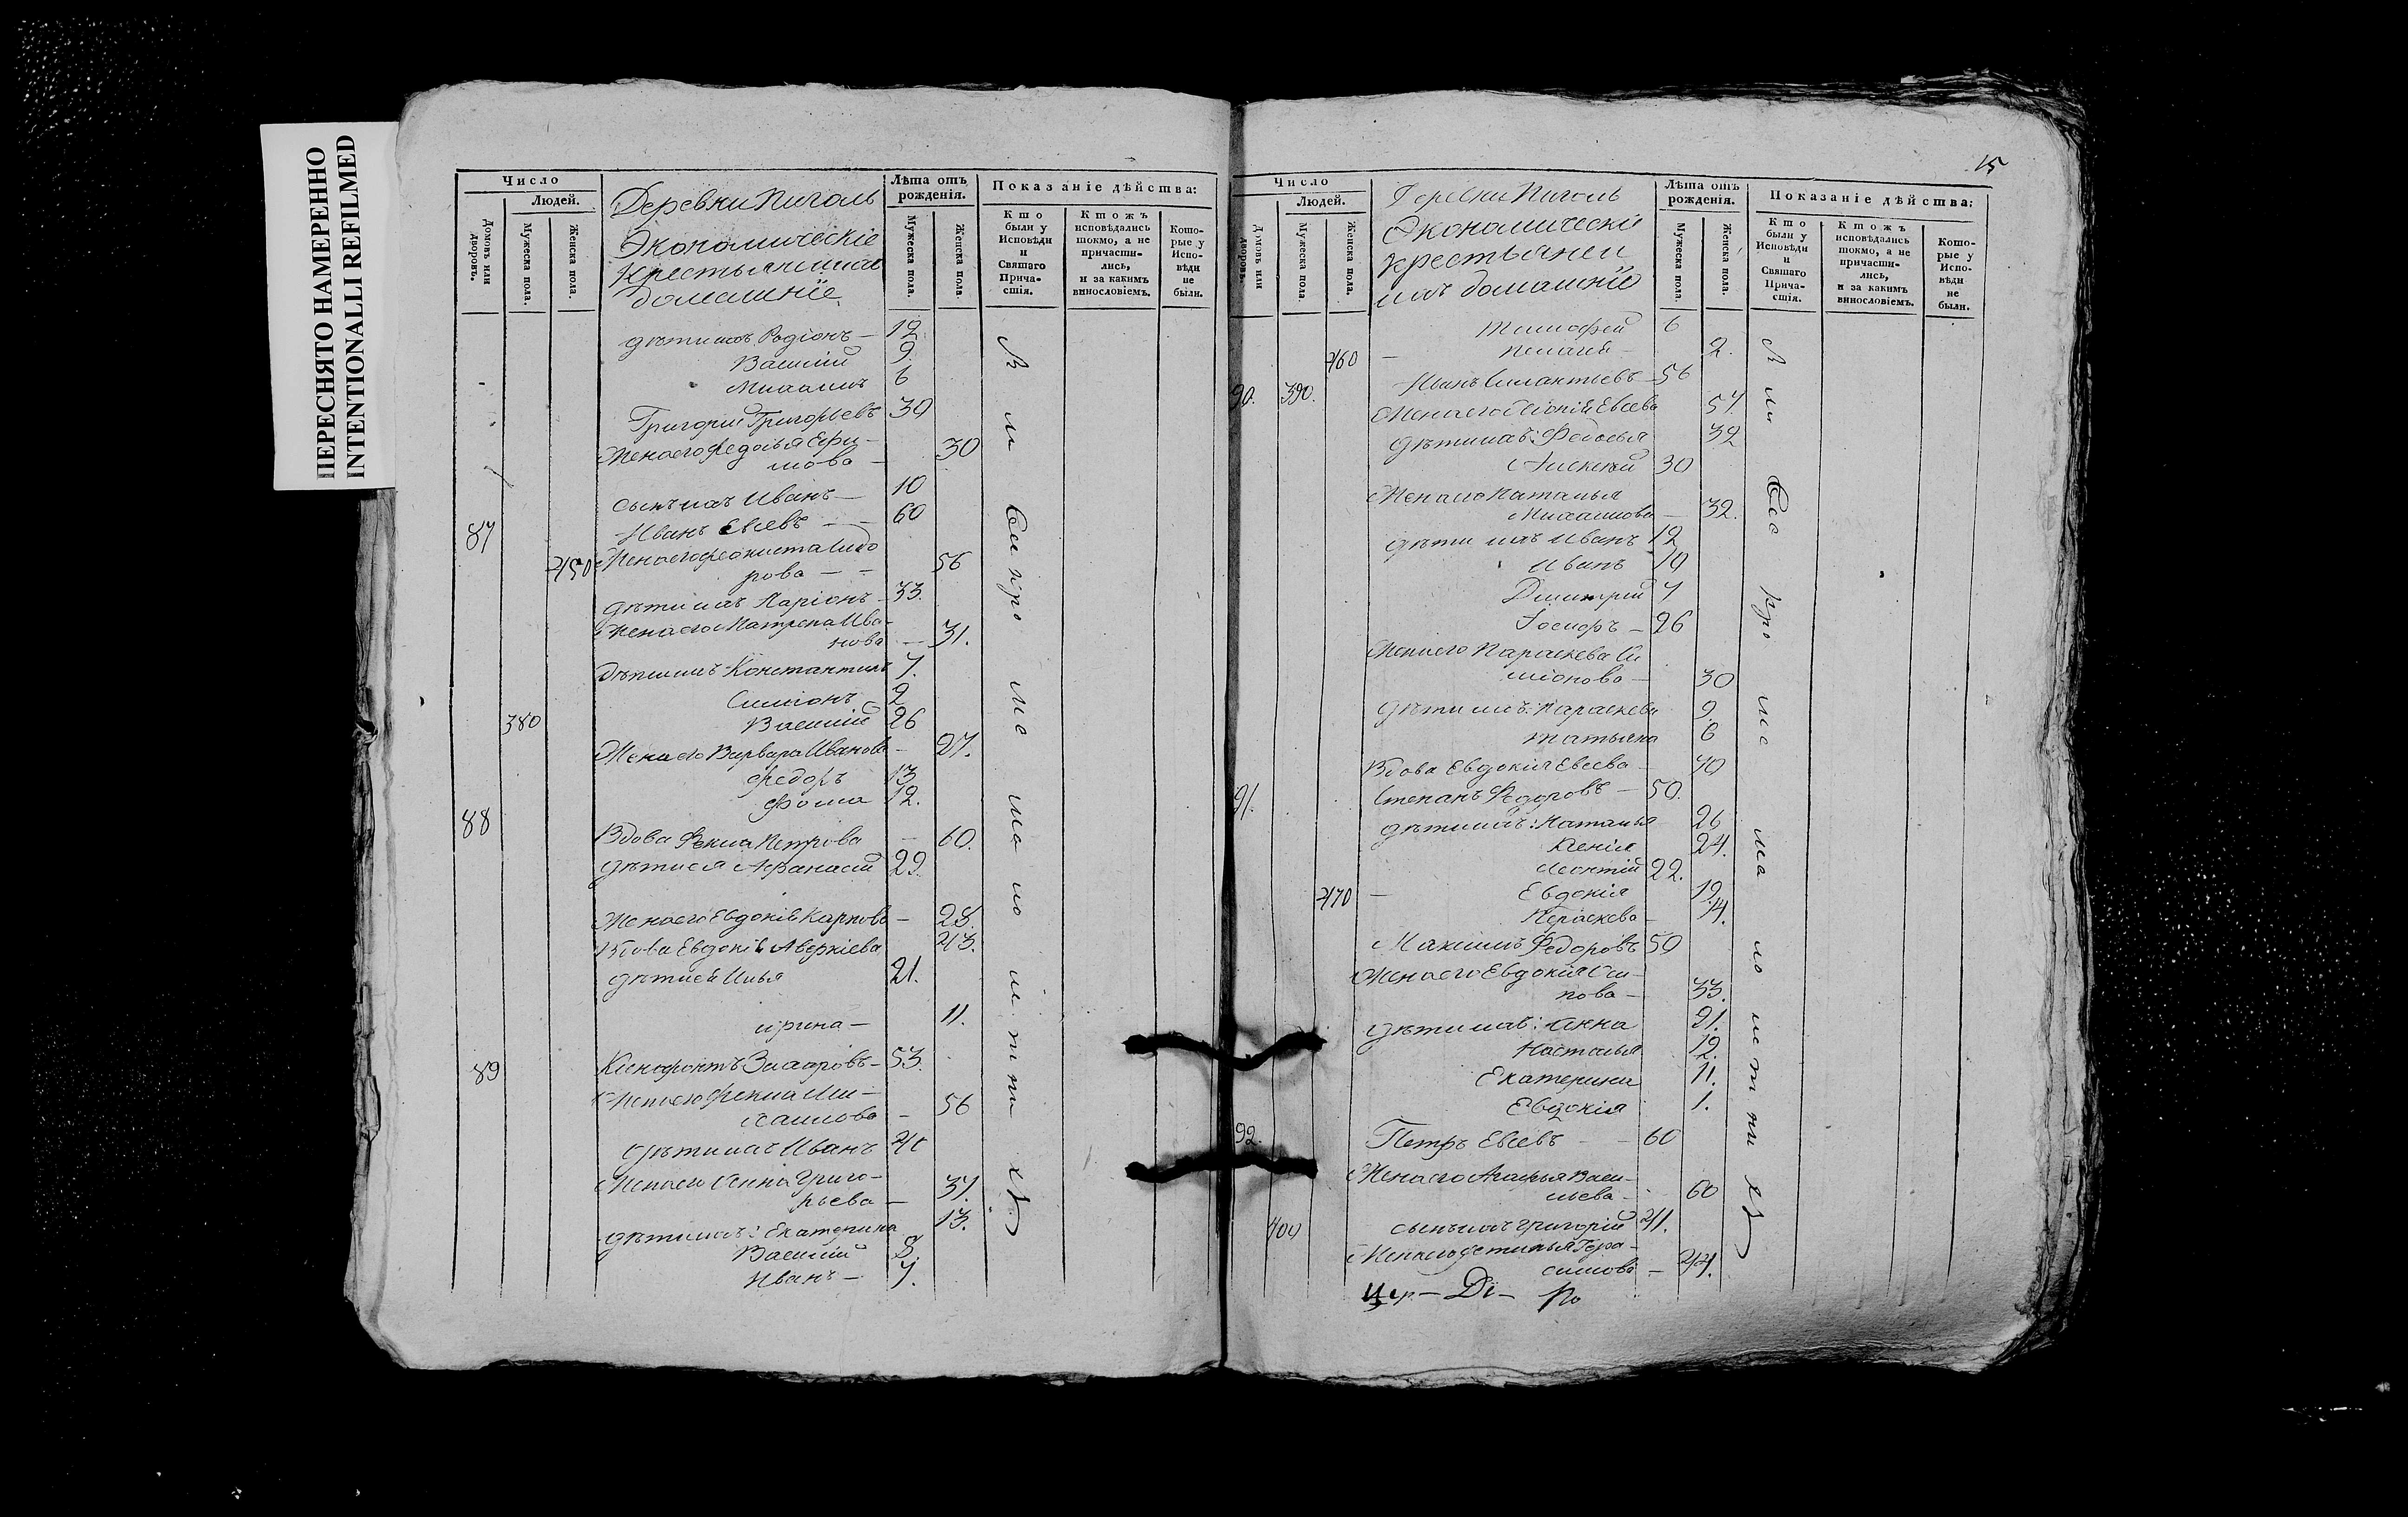 ПЕРЕСНЯТО НАМЕРЕННО
INTENTIONALLI REFILMED
Число
Людей.
Домовъ или дворовъ.
Мужеска пола.
Женска пола.
Деревни Пиголь
Экономическіе
крестьяне и ихъ
домашніе
Лѣта отъ
рожденія.
Мужеска пола.
Женска пола.
Показаніе дѣйства:
Кто
были у
Исповѣди
и
Святаго
Прича-
стія.
Ктожъ
исповѣдались
токмо, а не
причасти-
лись,
и за какимъ
винословіемъ.
Кото-
рые у
Испо-
вѣди
не
были.
дѣти ихъ Родіонъ — 12
Василій 9.
Михаилъ 6
Григорій Григорьевъ 30
Жена его Федосья Ефи-
мова — 30
сынъ ихъ Иванъ — 10
87 Иванъ Евсевъ — — 60
450 Жена его Феоктиста Сидо
рова — — 56
дѣти ихъ Ларіонъ — 33.
Жена его Матрена Ива-
нова — 31.
дѣти ихъ Константинъ 7.
Симіонъ 2
380 Василій 26
Жена его Варвара Иванова — 27.
Федоръ 13
Фома 12.
88
Вдова Фекла Петрова — 60.
дѣти ея Афанасій 22.
Жена его Евдокія Карпова — 28.
Вдова Евдокія Аверкіева 43.
дѣти ея Илья 21.
Ирина — 11.
89 Ксенофонтъ Захаровъ — 53.
Жена его Фекла Ми-
хаилова — 56
дѣти ихъ Иванъ 40
Жена его Анна Григо-
рьева — 37.
дѣти ихъ: Екатерина 13.
Василій 8.
Иванъ — 7.
15
Число
Людей.
Домовъ или дворовъ.
Мужеска пола.
Женска пола.
Деревни Пиголь
Экономическіе
крестьяне и
ихъ домашніе
Лѣта отъ
рожденія.
Мужеска пола.
Женска пола.
Показаніе дѣйства:
Кто
были у
Исповѣди
и
Святаго
Прича-
стія.
Ктожъ
исповѣдались
токмо, а не
причасти-
лись,
и за какимъ
винословіемъ.
Кото-
рые у
Испо-
вѣди
не
были.
Тимофей 6
460 — Пелагея — 2.
90. 390. Иванъ Силантьевъ — 56
Жена его Евсева 57.
дѣти ихъ: Федосья 32
Алексѣй 30
Жена его Наталья
Михаилова — 32.
дѣти ихъ Иванъ 12
Иванъ 10
Димитрій 7
Іосифъ — 26
Жена его Параскева Си
міонова — 30
дѣти ихъ: Параскева 9.
Татьяна 6
Вдова Евдокія Евсева — 40
91. Степанъ Федоровъ — 50.
дѣти ихъ: Наталья 26
Ксенія 24.
Леонтій 22.
470 — Евдокія 19.
Параскева — 14.
Максимъ Федоровъ 50
Жена его Евдокія Оси-
пова — 33.
дѣти ихъ: Анна 21.
Настасья 12.
Екатерина 11.
Евдокія 1.
92. Петръ Евсевъ — — 60
Жена его Агафья Васи-
льева — 60
400 сынъ ихъ Григорій 41.
Жена его Фетинья Гера-
симова — 44.
Цер — Ді — По